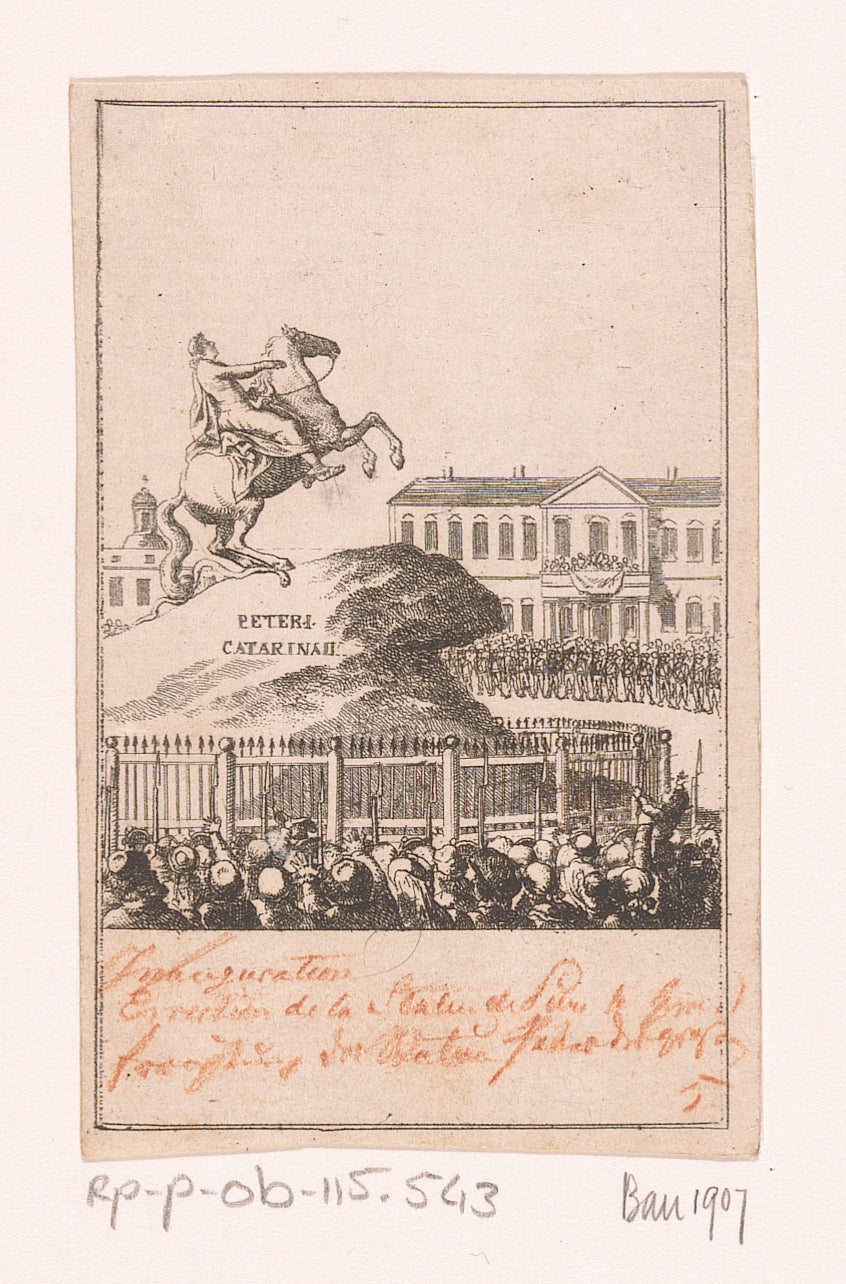 PETER I.
CATARINA II.
Inhauguration
Erection de la Statue de Pierre le Grand
der Statue Peter des
5
RP-P-OB-115.543
Bau 1907